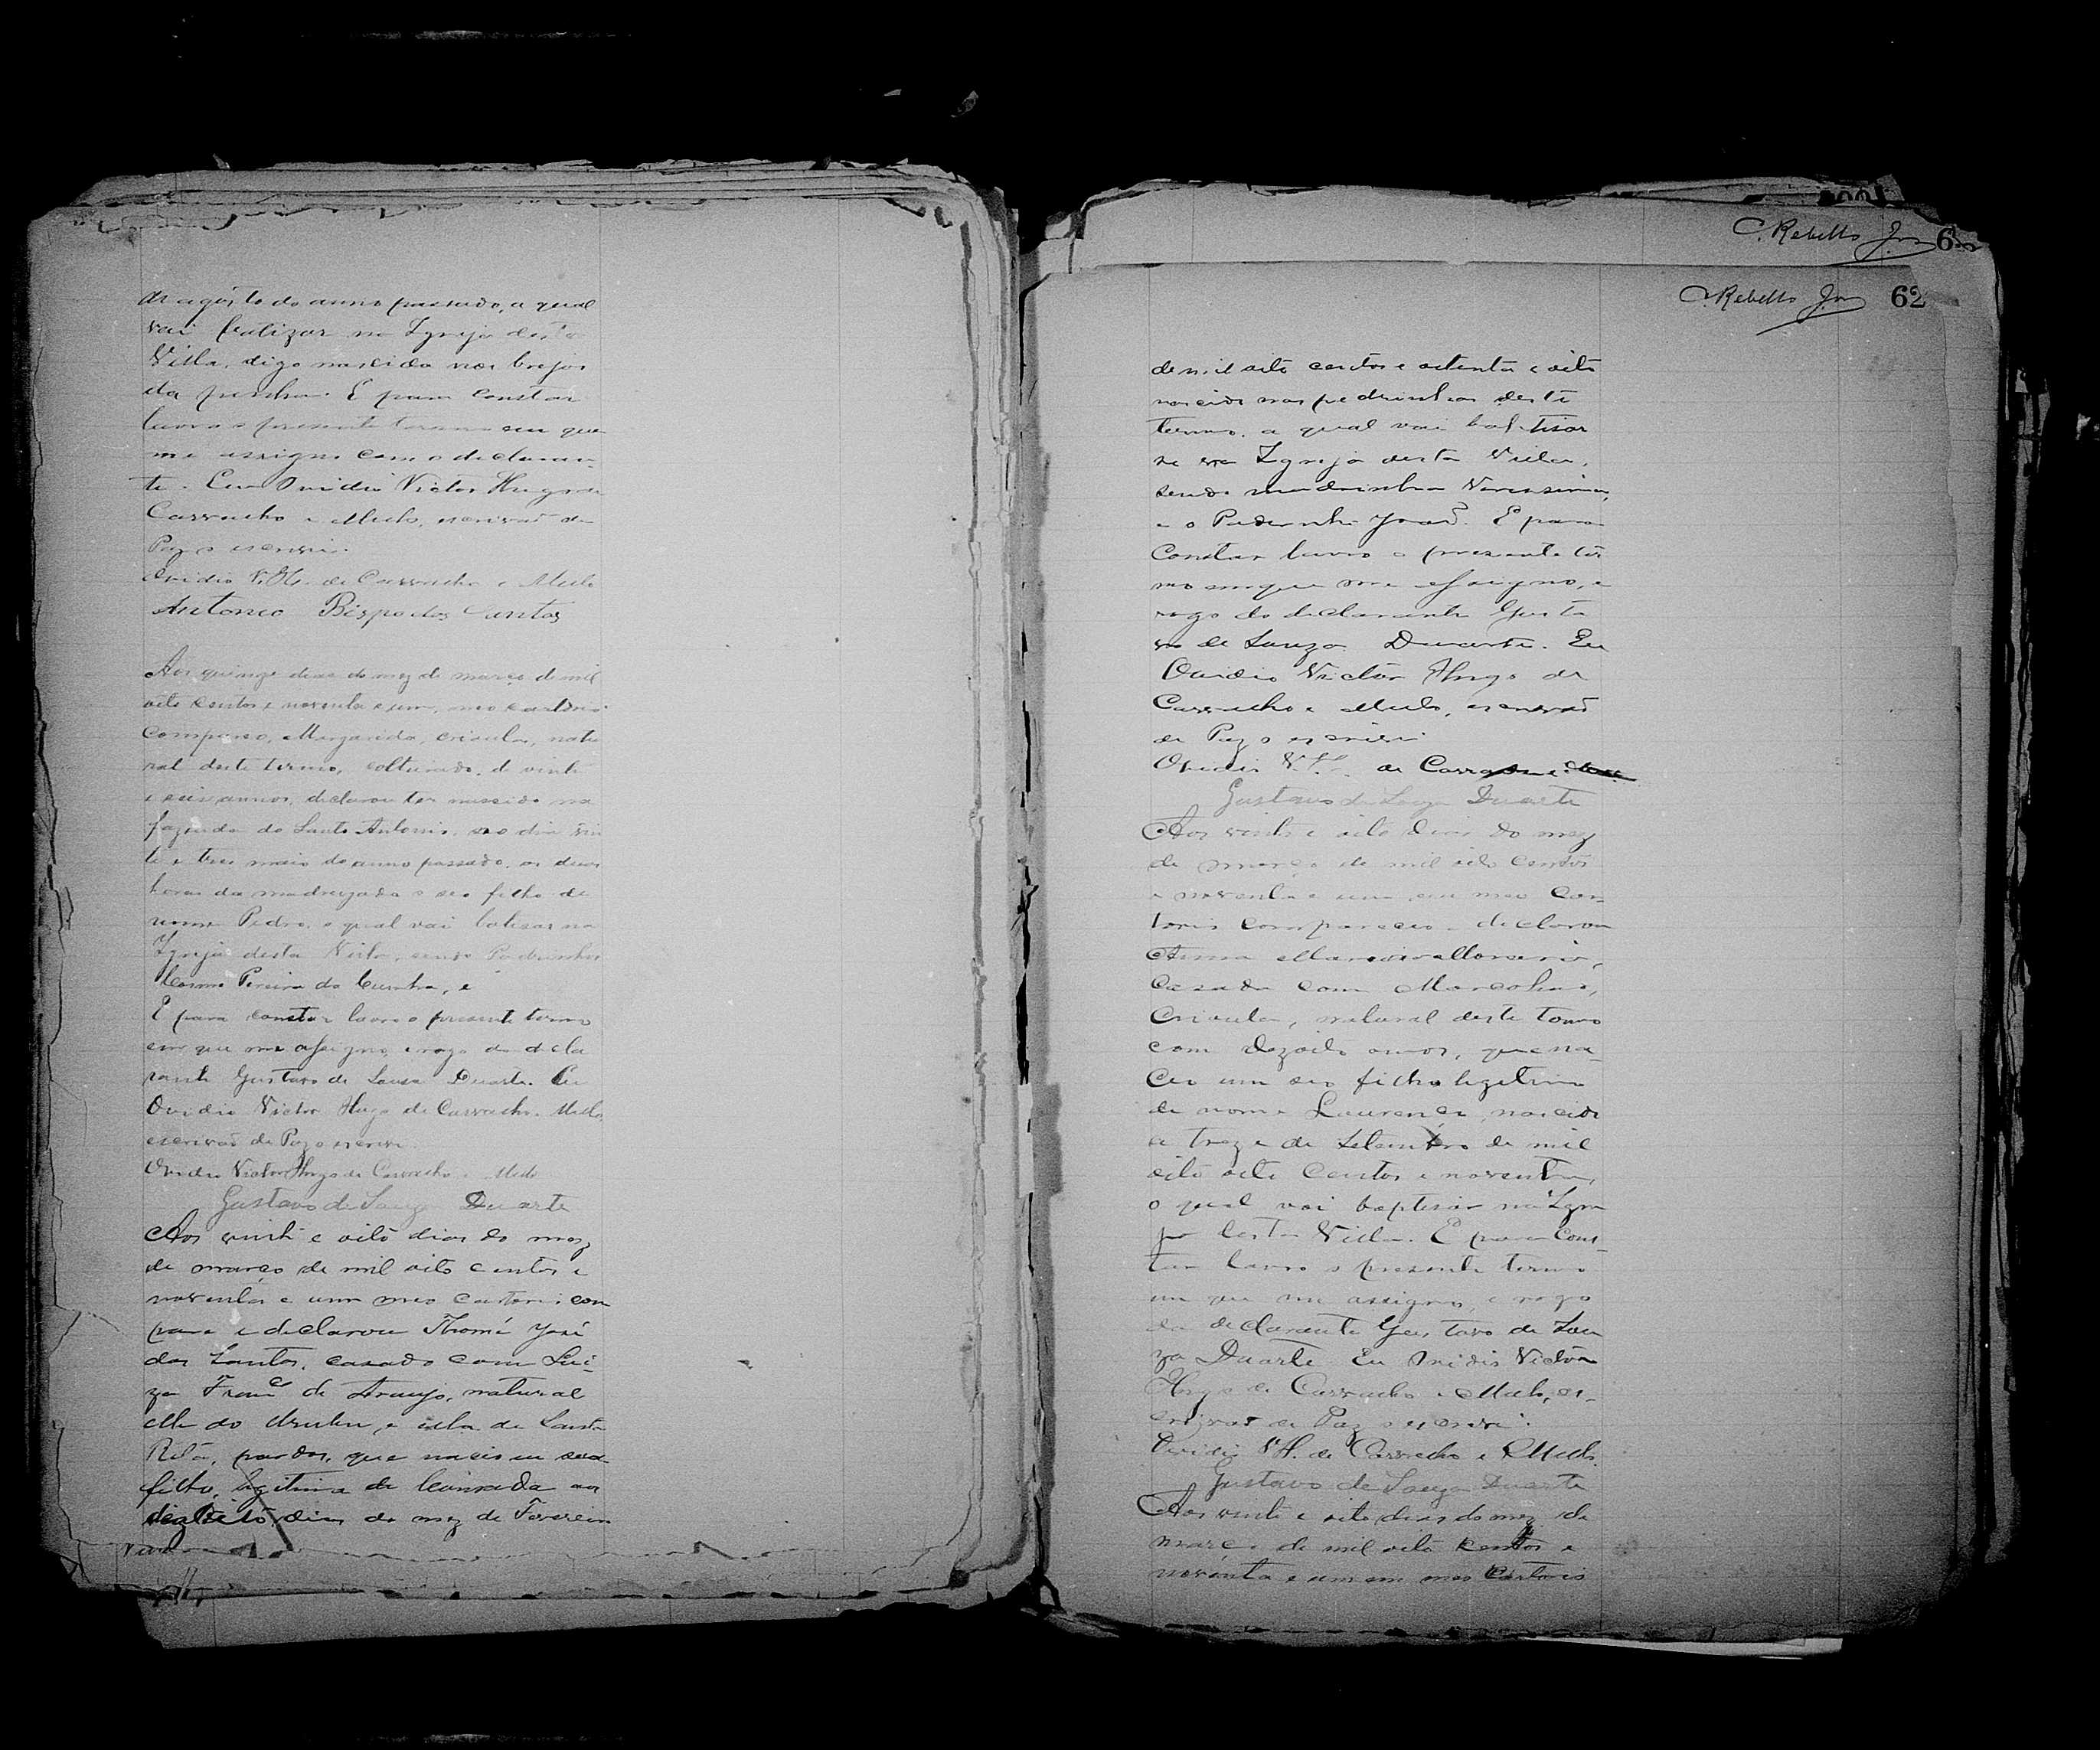 de agosto do anno passado, a qual
vai batizar na Igreja desta
Villa, digo nascida nos brejos
da prinha. E para constar
lavro o presente termo em que
me assigno com o declaran-
te. Eu Ovidio Victor Hugo de
Carvalho e Mello, escrivaõ de
Paz o escrevi.
Ovidio V. H. de Carvalho e Mello
Antonio Bispo dos Santos
Aos quinze dias do mez de março de mil
oito centos e noventa e um, meo cartorio
compareo, Margarida, crioula, natu
ral deste termo, solteira, de vinte
e seis annos, declarou ter nascido na
fazenda do Santo Antonio, no dia vin
te e tres maio do anno passado, as duas
horas da madrugada o seo filho de
nome Pedro, o qual vai batisar na
Igreja desta Villa, sendo Padrinhos
Cosmo Pereira da Cunha, e
E para constar lavro o presente termo
em que me assigno, e rogo da decla
rante Gustavo de Souza Duarte. Eu
Ovidio Victor Hugo de Carvalho e Mello,
escrivaõ de Paz o escrevi.
Ovidio Victor Hugo de Carvalho e Mello
Gustavo de Souza Duarte
Aos vinte e oito dias do mez
de março de mil oito centos e
noventa e um meo cartorio com
pare e declarou Thomé José
dos Santos, casado com Lui-
za Franca de Araujo, natural
elle do e ella de Santa
Rita, pardos, que nasceu sua
filha, legitima de Conrada aos
dezoito dias do mez de Fevereiro
C. Rebello Jor 6
C. Rebello Jor 62
de mil oito centos e oitenta e oito
nascida nas pedrinhas deste
termo, a qual vai baptisar
se na Igreja desta Villa,
sendo madrinha Verissima,
e o Padrinho Joaõ. E para
Constar lavro o presente ter
mo em que me assigno, e
rogo do declarante Gusta
vo de Souza Duarte. Eu
Ovidio Victor Hugo de
Carvalho e Mello, escrivaõ
de Paz o escrevi
Ovidio V. H. de
Gustavo de Souza Duarte
Aos vinte e oito dias do mez
de março de mil oito centos
e noventa e um, em meo car
torio compareceo e declarou
Anna
Casada com Marcolino,
Crioula, natural deste termo
com dezoito annos, que na-
ceo um seo filho legitimo
de nome Laurença, nascido
a treze de Setembro de mil
oito oito centos e noventa,
o qual vai baptisar na Igre
ja desta Villa. E para Cons-
tar lavro o presente termo
em que me assigno, e rogo
da declarante Gustavo de Sou
za Duarte Eu Ovidio Victor
Hugo de Carvalho e Mello, es-
crivaõ de Paz o escrevi.
Ovidio V. H. de Carvalho e Mello.
Gustavo de Souza Duarte
Aos vinte e oito dias do mez de
março de mil oito centos e
noventa e um em meo Cartorio